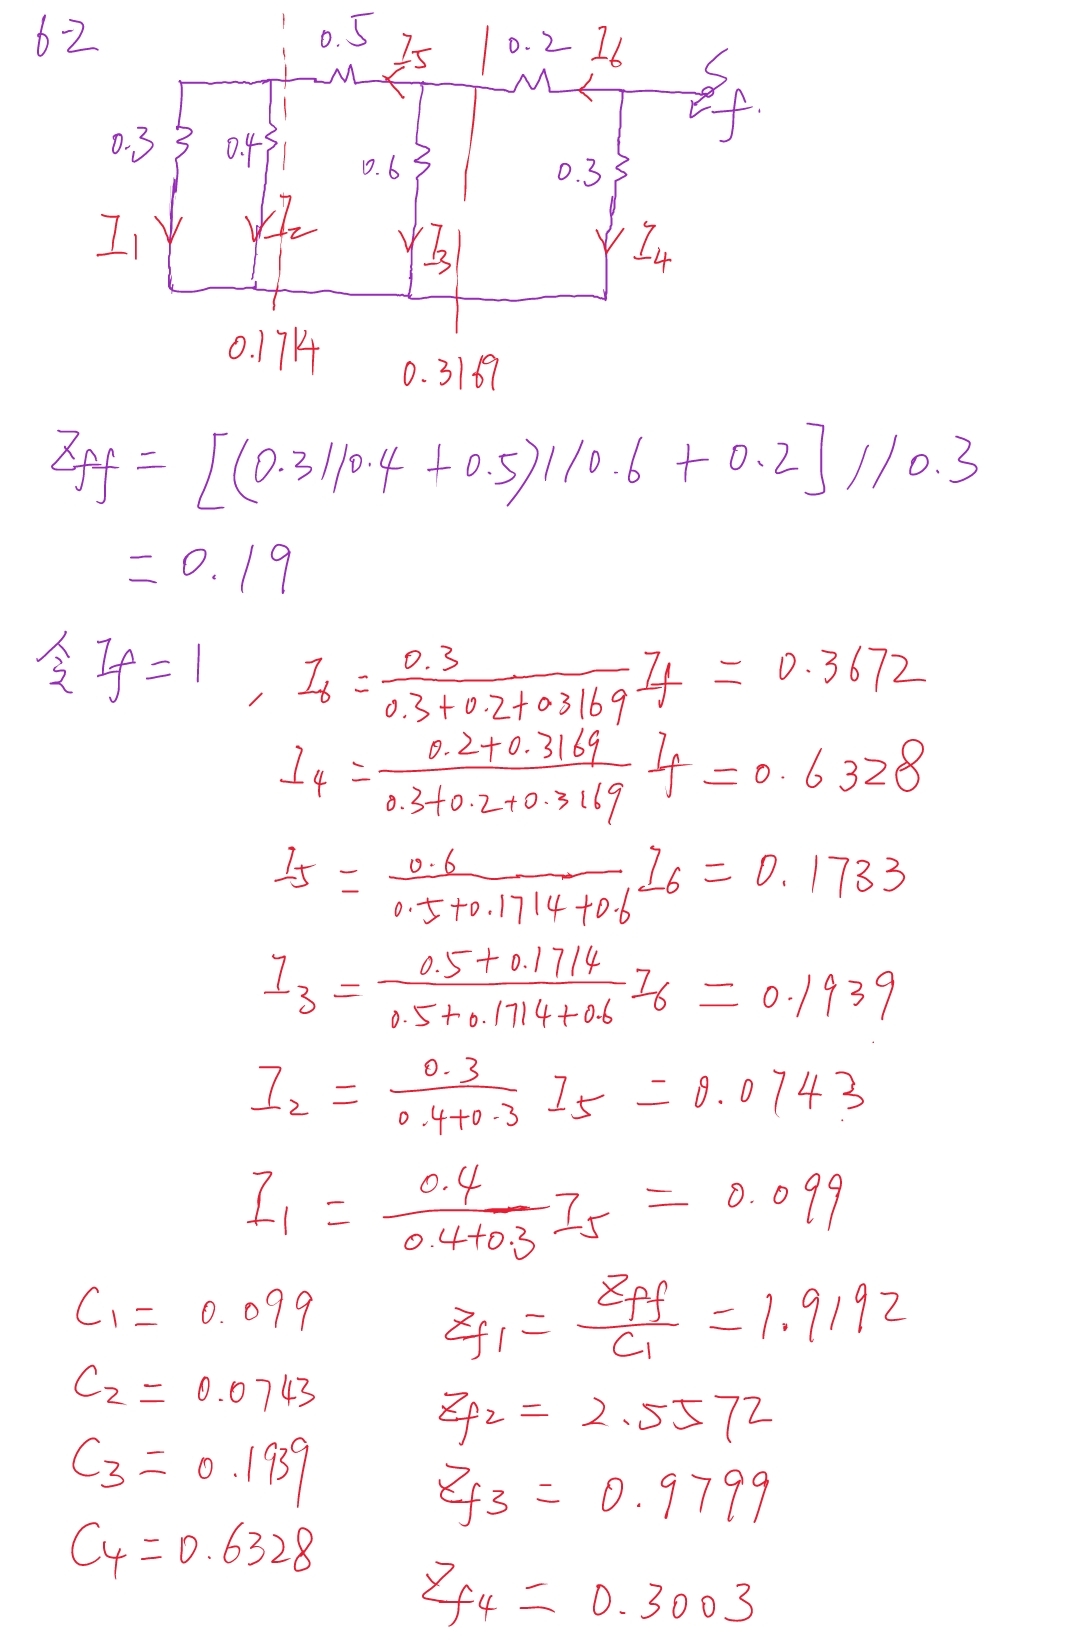 6-2
0.5 I5 0.2 I6
f.
0.3 0.4 0.6 0.3
I1 I2 I3 I4
0.1714
0.3169
Zff = [(0.3//0.4 + 0.5)//0.6 + 0.2]//0.3
= 0.19
令 If = 1 , I6 = 0.3/(0.3+0.2+0.3169) If = 0.3672
I4 = (0.2+0.3169)/(0.3+0.2+0.3169) If = 0.6328
I5 = 0.6/(0.5+0.1714+0.6) I6 = 0.1733
I3 = (0.5+0.1714)/(0.5+0.1714+0.6) I6 = 0.1939
I2 = 0.3/(0.4+0.3) I5 = 0.0743
I1 = 0.4/(0.4+0.3) I5 = 0.099
C1 = 0.099 Zf1 = Zff/C1 = 1.9192
C2 = 0.0743 Zf2 = 2.5572
C3 = 0.1939 Zf3 = 0.9799
C4 = 0.6328 Zf4 = 0.3003